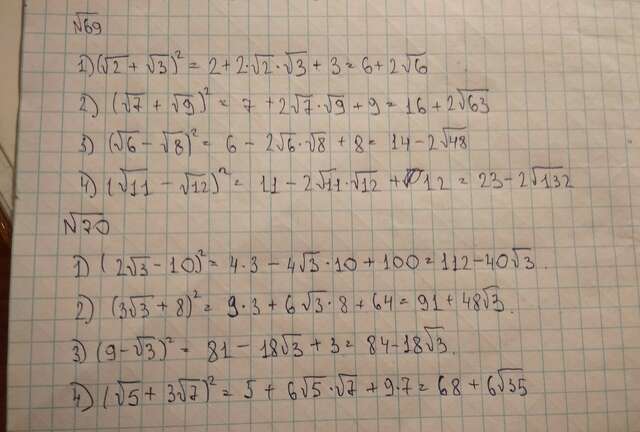 √69
1) (√2 + √3)² = 2 + 2·√2·√3 + 3 = 6 + 2√6
2) (√7 + √9)² = 7 + 2√7·√9 + 9 = 16 + 2√63
3) (√6 − √8)² = 6 − 2√6·√8 + 8 = 14 − 2√48
4) (√11 − √12)² = 11 − 2√11·√12 + 12 = 23 − 2√132
√70
1) (2√3 − 10)² = 4·3 − 4√3·10 + 100 = 112 − 40√3.
2) (3√3 + 8)² = 9·3 + 6√3·8 + 64 = 91 + 48√3.
3) (9 − √3)² = 81 − 18√3 + 3 = 84 − 18√3.
4) (√5 + 3√7)² = 5 + 6√5·√7 + 9·7 = 68 + 6√35